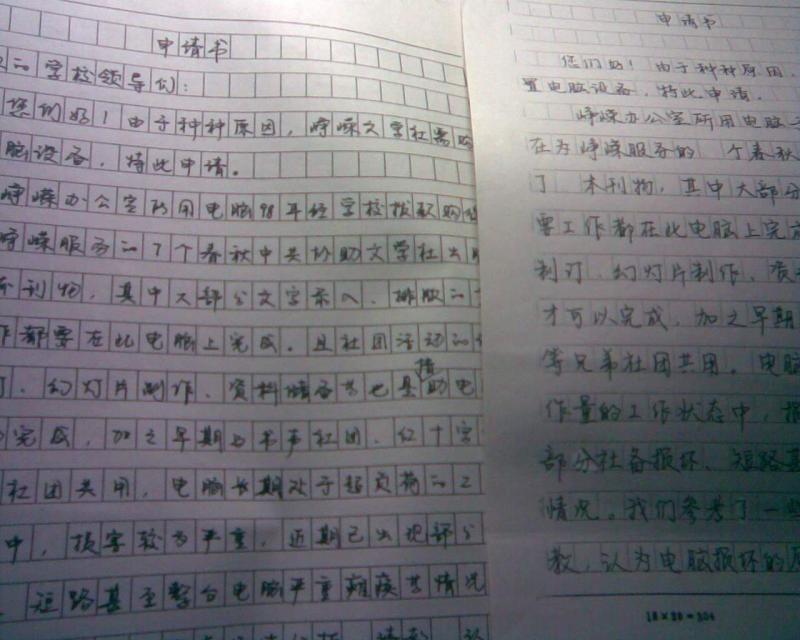 申请书
的学校领导们：
您们好！由于种种原因，峥嵘文学社需购
脑设备，特此申请。
峥嵘办公室所用电脑98年经学校拨款购
峥嵘服务的7个春秋中共协助文学社出
刊物，其中大部分文字录入、排版的
都要在此电脑上完成。且社团活动的
订、幻灯片制作、资料储备等也是借助电
完成，加之早期与书画社团、红十字
社团共用，电脑长期处于超负荷的工
中，损害较为严重，近期已出现部分
短路甚至整台电脑严重瘫痪等情况
申请书
您们好！由于种种原因，
置电脑设备，特此申请。
峥嵘办公室所用电脑
在为峥嵘服务的 个春秋
了 本刊物，其中大部分
要工作都在此电脑上完成
制订、幻灯片制作、资
才可以完成，加之早期
等兄弟社团共用。电脑
作量的工作状态中，损
部分设备损坏、短路甚
情况。我们参考了一些
教，认为电脑损坏的原
18×28=504